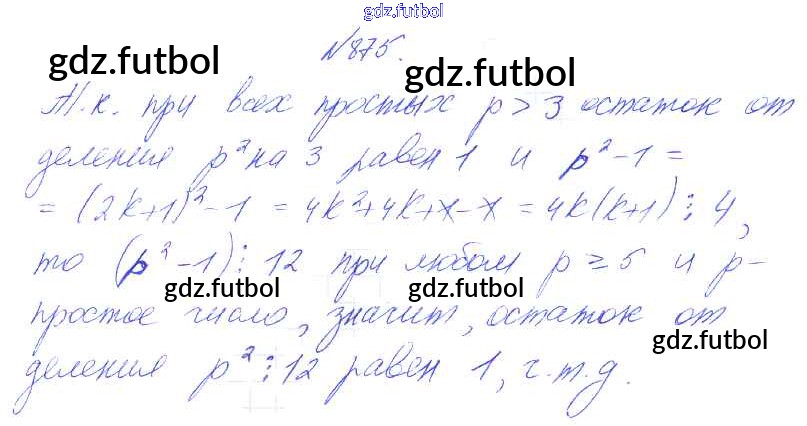 gdz.futbol
№875.
gdz.futbol
gdz.futbol
Т.к. при всех простых p > 3 остаток от
деления p² на 3 равен 1 и p²-1 =
= (2k+1)²-1 = 4k²+4k+1-1 = 4k(k+1)⋮4,
то (p²-1)⋮12 при любом p ≥ 5 и p-
gdz.futbol
gdz.futbol
простое число, значит, остаток от
gdz.futbol
деления p²⋮12 равен 1, ч.т.д.